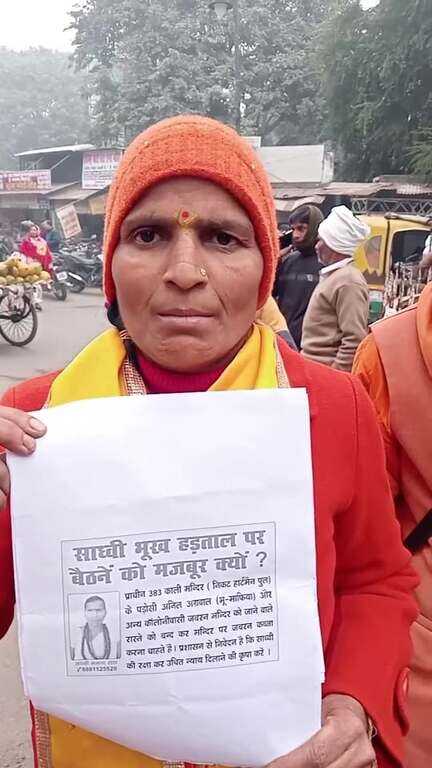 साध्वी भूख हड़ताल पर
बैठनें को मजबूर क्यों ?
प्राचीन 383 काली मन्दिर ( निकट हार्टमैन पुल)
के पड़ोसी अनिल अग्रवाल (भू-माफिया) और
अन्य कॉलोनीवासी जबरन मन्दिर को जाने वाले
रास्ते को बन्द कर मन्दिर पर जबरन कब्जा
करना चाहते है। प्रशासन से निवेदन है कि साध्वी
की रक्षा कर उचित न्याय दिलाने की कृपा करें ।